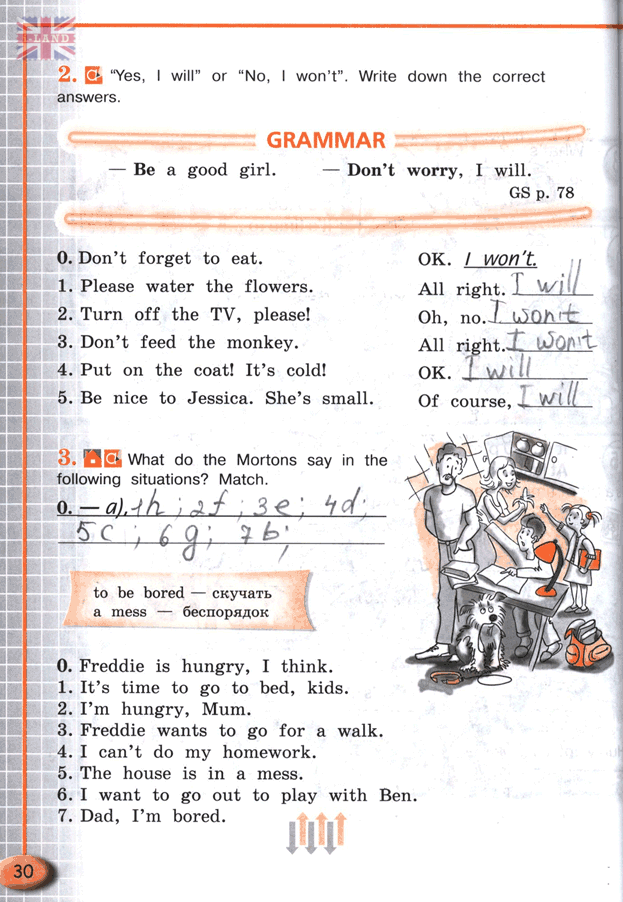 I-LAND
2. "Yes, I will" or "No, I won't". Write down the correct
answers.
GRAMMAR
— Be a good girl. — Don't worry, I will.
GS p. 78
0. Don't forget to eat. OK. I won't.
1. Please water the flowers. All right. I will
2. Turn off the TV, please! Oh, no. I won't
3. Don't feed the monkey. All right. I won't
4. Put on the coat! It's cold! OK. I will
5. Be nice to Jessica. She's small. Of course, I will
3. What do the Mortons say in the
following situations? Match.
0. — a), 1h; 2f; 3e; 4d;
5c; 6g; 7b;
to be bored — скучать
a mess — беспорядок
0. Freddie is hungry, I think.
1. It's time to go to bed, kids.
2. I'm hungry, Mum.
3. Freddie wants to go for a walk.
4. I can't do my homework.
5. The house is in a mess.
6. I want to go out to play with Ben.
7. Dad, I'm bored.
30